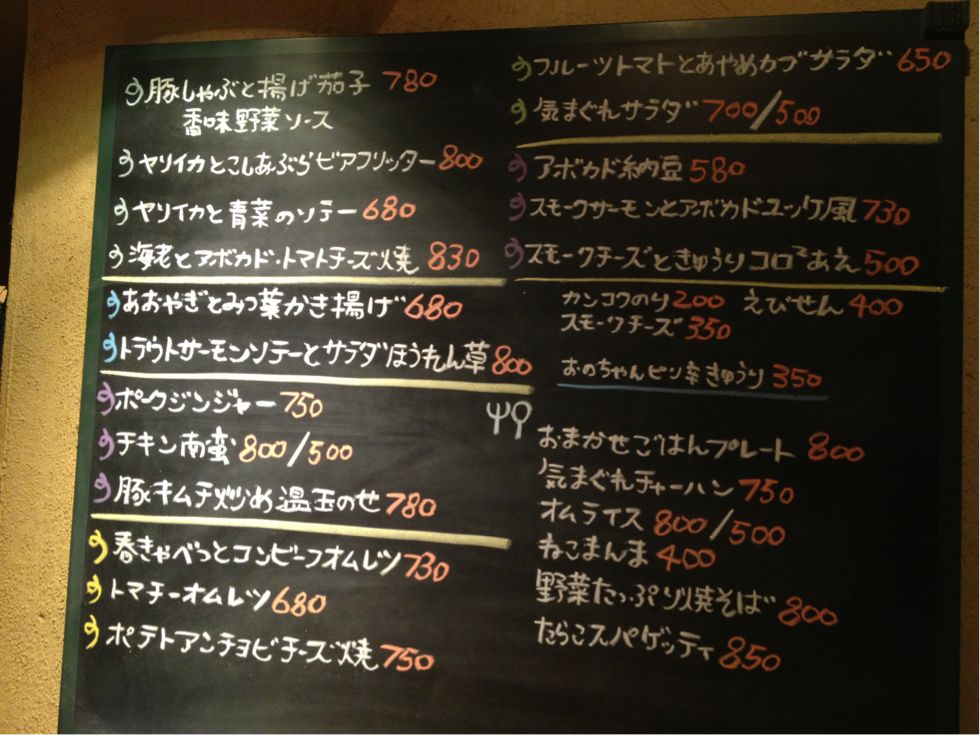 豚しゃぶと揚げ茄子 780
香味野菜ソース
ヤリイカとこしあぶらビアフリッター 800
ヤリイカと青菜のソテー 680
海老とアボカド・トマトチーズ焼 830
あおやぎとみつ葉かき揚げ 680
トラウトサーモンソテーとサラダほうれん草 800
ポークジンジャー 750
チキン南蛮 800/500
豚キムチ炒め温玉のせ 780
春きゃべつとコンビーフオムレツ 730
トマチーオムレツ 680
ポテトアンチョビチーズ焼 750
フルーツトマトとあやめカブサラダ 650
気まぐれサラダ 700/500
アボカド納豆 580
スモークサーモンとアボカドユッケ風 730
スモークチーズときゅうりコロ²あえ 500
カンコクのり 200 えびせん 400
スモークチーズ 350
おのちゃんピリ辛きゅうり 350
おまかせごはんプレート 800
気まぐれチャーハン 750
オムライス 800/500
ねこまんま 400
野菜たっぷり焼そば 800
たらこスパゲッティ 850